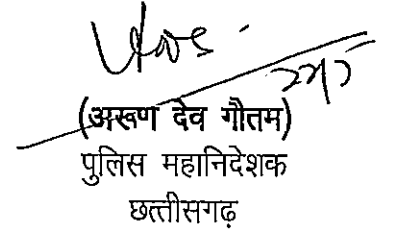 (अरूण देव गौतम)
पुलिस महानिदेशक
छत्तीसगढ़